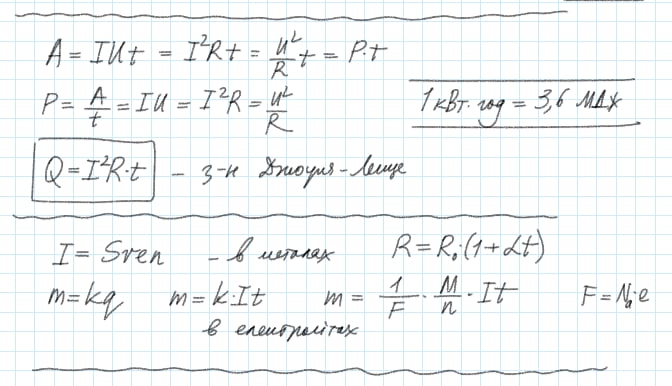 A = IUt = I²Rt = U²/R t = P·t
P = A/t = IU = I²R = U²/R
1 кВт·год = 3,6 МДж
Q = I²R·t - з-н Джоуля-Ленце
I = Sven - в металах R = R₀·(1+αt)
m=kq m = k·It m = 1/F · M/n · It F = Nₐ·e
в електролітах